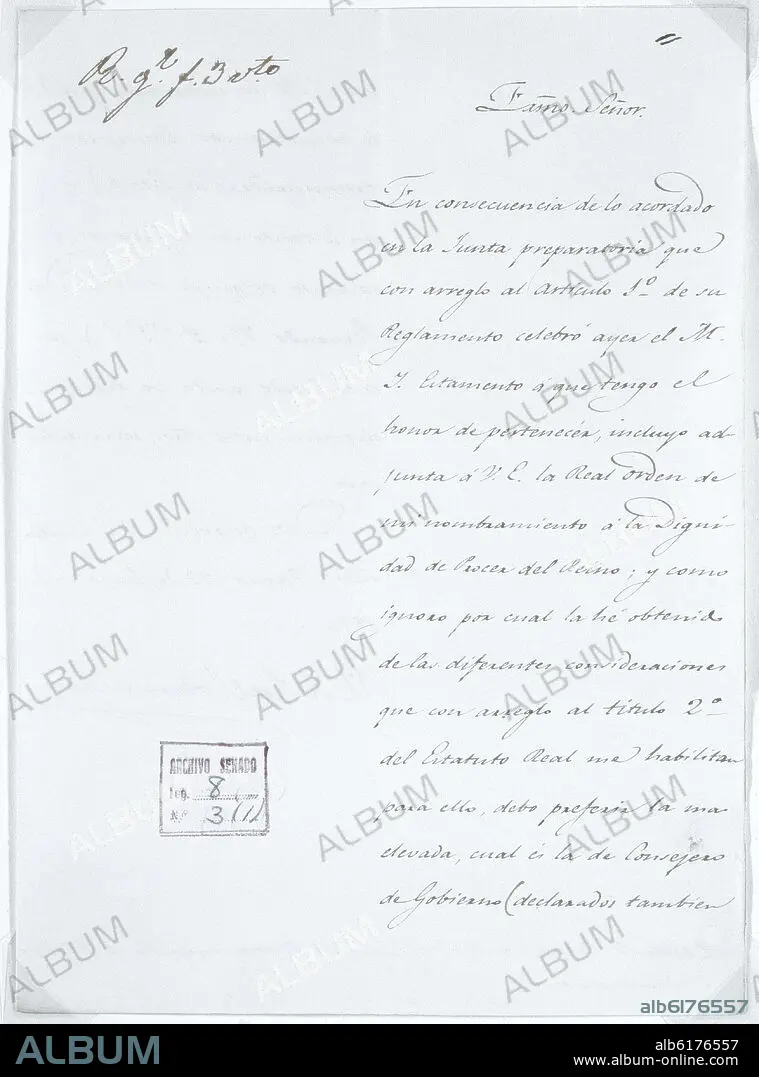 R. gl. f. 3 vto
Exmo. Señor.
En consecuencia de lo acordado
en la Junta preparatoria que
con arreglo al Artículo 1º de su
Reglamento celebró ayer el M.
I. Estamento á que tengo el
honor de pertenecer, incluyo ad-
junta á V. E. la Real orden de
mi nombramiento á la Digni-
dad de Procer del Reino; y como
ignoro por cual la hé obtenido
de las diferentes consideraciones
que con arreglo al titulo 2º
del Estatuto Real me habilitan
para ello, debo preferir la mas
elevada, cual és la de Consejero
de Gobierno (declarados tambien
ARCHIVO SENADO
Leg. 8
Nº 3 (1)
ALBUM
alb6176557
ALBUM
alb6176557
www.album-online.com